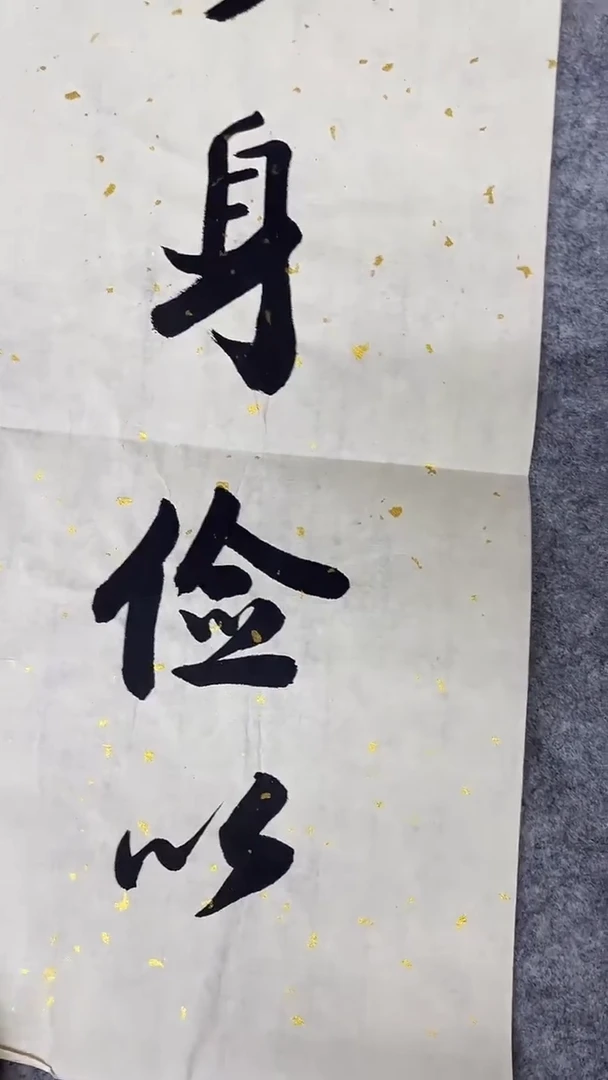 身俭以